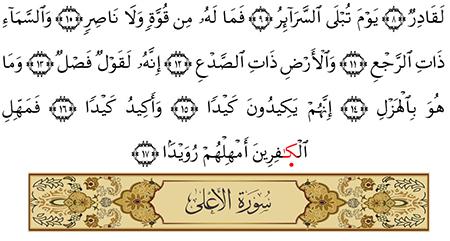 لَقَادِرٌ ﴿٨﴾ يَوْمَ تُبْلَى السَّرَآئِرُ ﴿٩﴾ فَمَا لَهُ مِن قُوَّةٍ وَلَا نَاصِرٍ ﴿١٠﴾ وَالسَّمَآءِ
ذَاتِ الرَّجْعِ ﴿١١﴾ وَالْأَرْضِ ذَاتِ الصَّدْعِ ﴿١٢﴾ إِنَّهُ لَقَوْلٌ فَصْلٌ ﴿١٣﴾ وَمَا
هُوَ بِالْهَزْلِ ﴿١٤﴾ إِنَّهُمْ يَكِيدُونَ كَيْدًا ﴿١٥﴾ وَأَكِيدُ كَيْدًا ﴿١٦﴾ فَمَهِّلِ
الْكَٰفِرِينَ أَمْهِلْهُمْ رُوَيْدًا ﴿١٧﴾
سُورَةُ الأَعْلَى